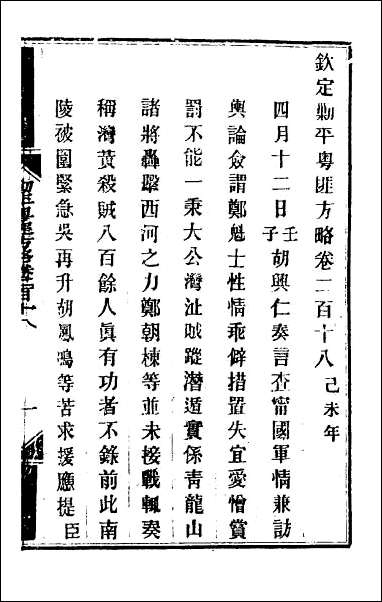 欽定勦平粵匪方略卷二百十八己未年
四月十二日壬子胡興仁奏言查甯國軍情兼訪
輿論僉謂鄭魁士性情乖僻措置失宜愛憎賞
罰不能一秉大公灣沚賊蹤潛遁實係青龍山
諸將轟擊西河之力鄭朝棟等並未接戰輒奏
稱灣黃殺賊八百餘人眞有功者不錄前此南
陵破圍緊急吳再升胡鳳鳴等苦求援應提臣
一